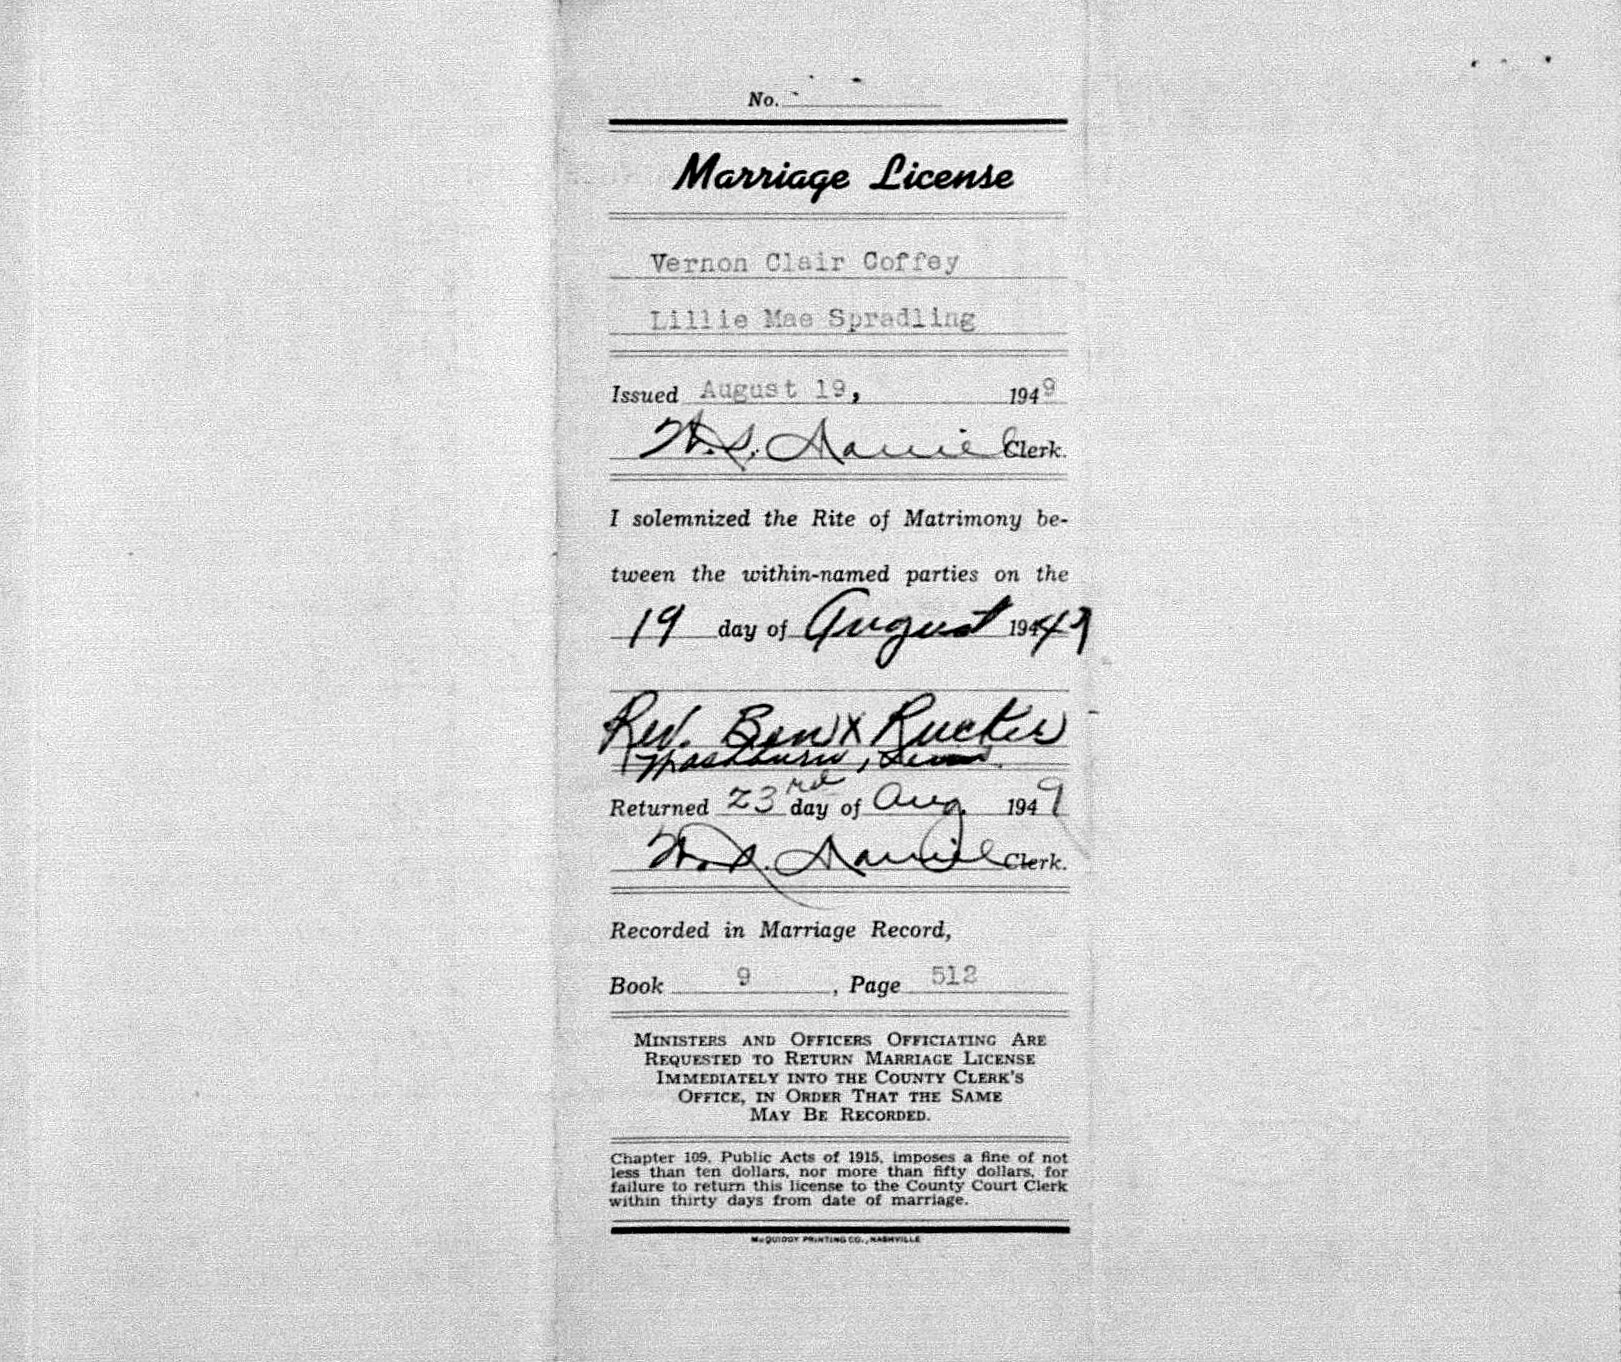 No.
Marriage License
Vernon Clair Coffey
Lillie Mae Spradling
Issued August 19, 1949
W. S. Daniel Clerk.
I solemnized the Rite of Matrimony be-
tween the within-named parties on the
19 day of August 19449
Rev. Ben X Rucker
Washburn, Tenn.
Returned 23rd day of Aug. 1949
Clerk.
Recorded in Marriage Record,
Book 9, Page 512
MINISTERS AND OFFICERS OFFICIATING ARE
REQUESTED TO RETURN MARRIAGE LICENSE
IMMEDIATELY INTO THE COUNTY CLERK'S
OFFICE, IN ORDER THAT THE SAME
MAY BE RECORDED.
Chapter 109, Public Acts of 1915, imposes a fine of not
less than ten dollars, nor more than fifty dollars, for
failure to return this license to the County Court Clerk
within thirty days from date of marriage.
McQUIDDY PRINTING CO., NASHVILLE